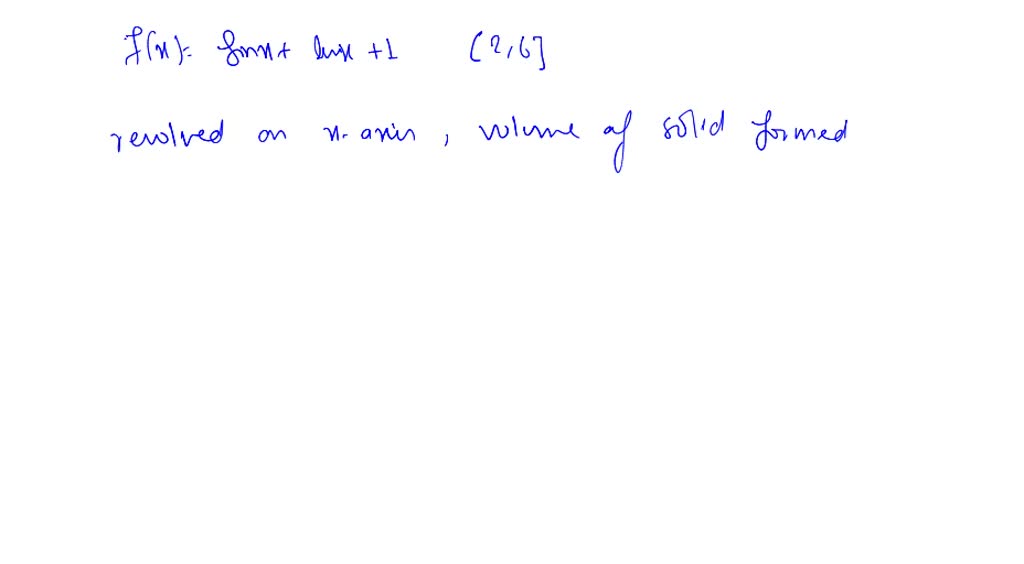 f(x)= sinx + lnx +1 [2,6]
revolved on x-axis, volume of solid formed